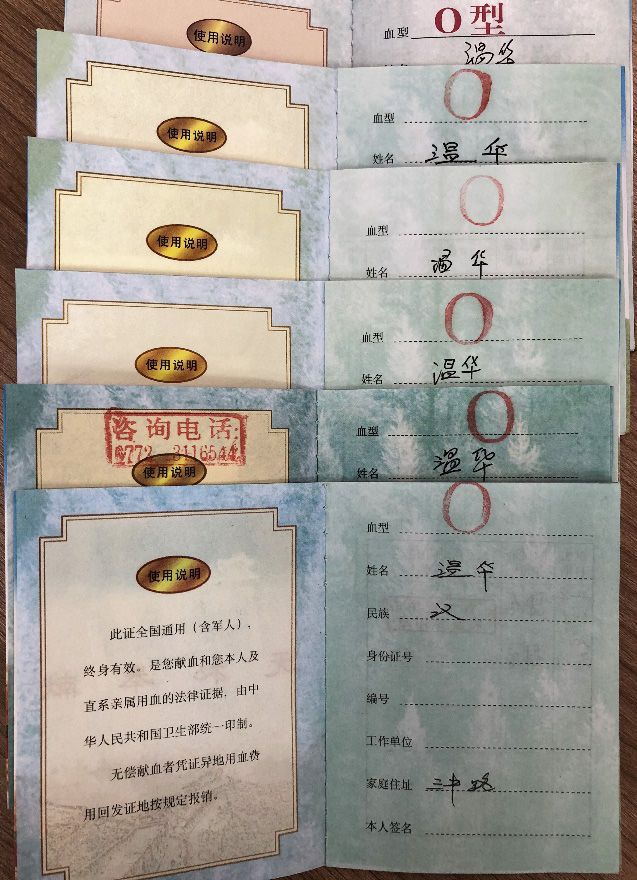 使用说明
血型 O型
温华
使用说明
血型 O
姓名 温华
使用说明
血型 O
姓名 温华
使用说明
血型 O
姓名 温华
咨询电话:
0772 3116544
使用说明
血型 O
姓名 温华
使用说明
此证全国通用（含军人），
终身有效。是您献血和您本人及
直系亲属用血的法律证据，由中
华人民共和国卫生部统一印制。
无偿献血者凭证异地用血费
用回发证地按规定报销。
血型 O
姓名 温华
民族 汉
身份证号
编号
工作单位
家庭住址 三中路
本人签名